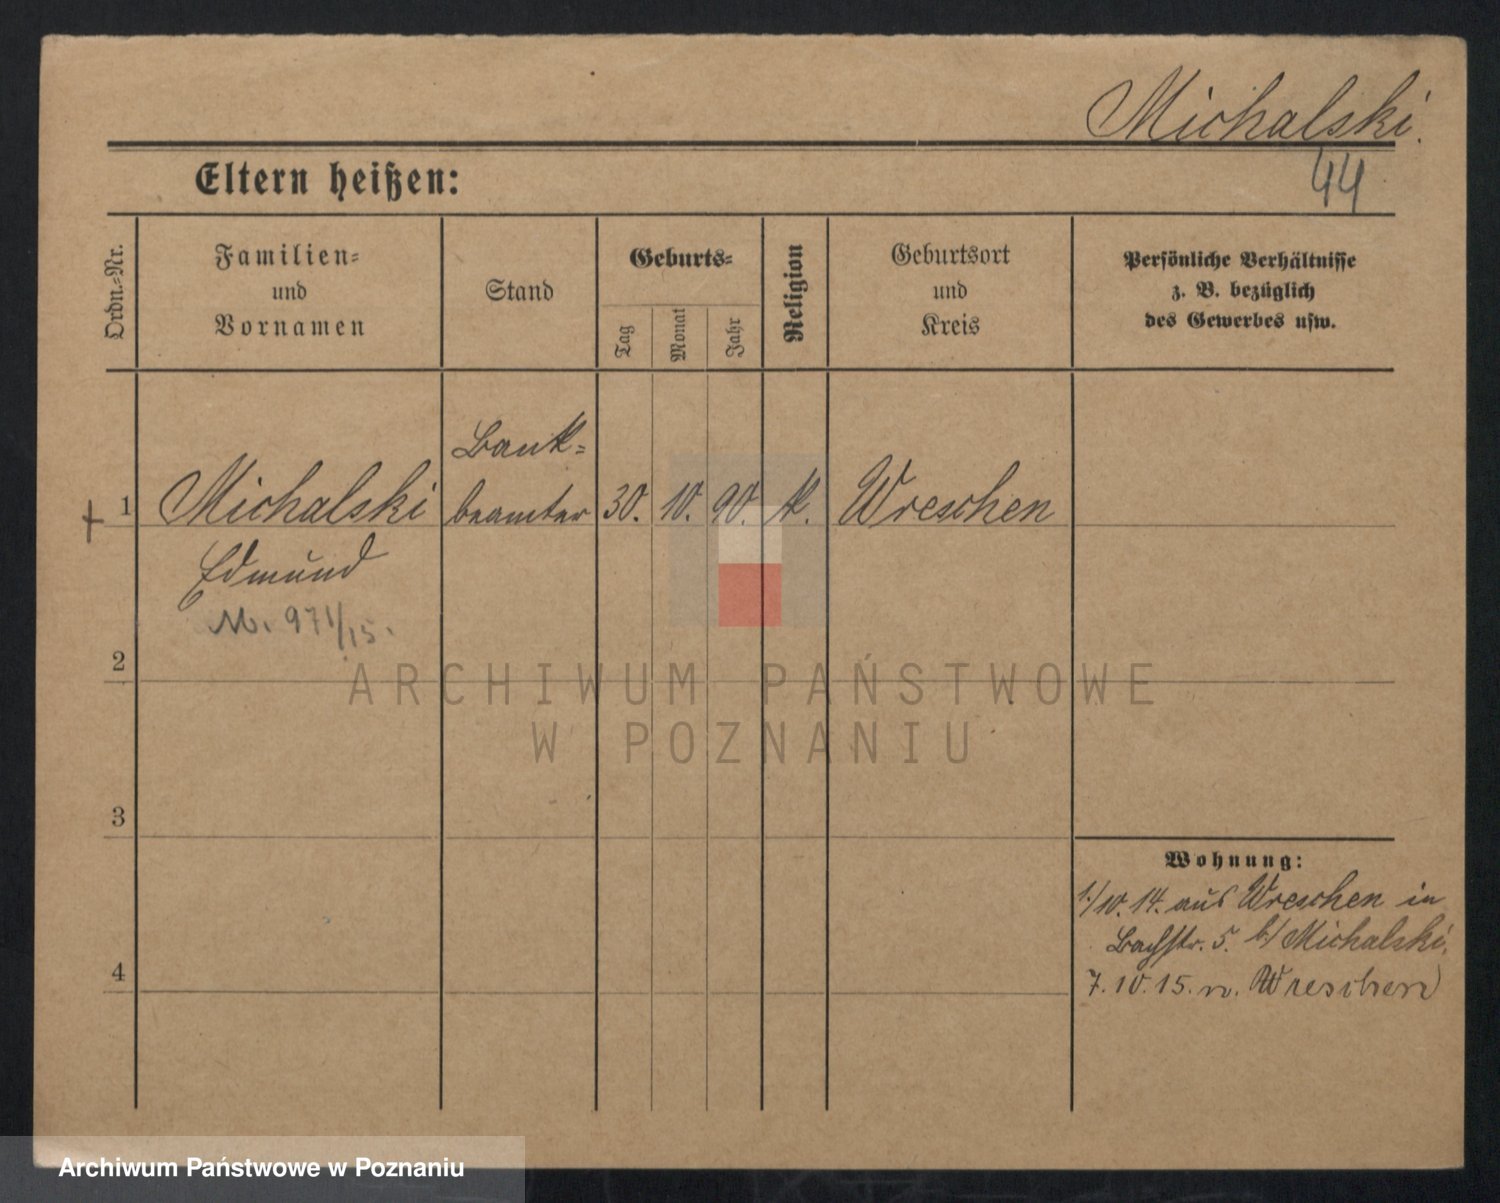 Michalski.
44
Eltern heißen:
Ordn.-Nr.
Familien-
und
Vornamen
Stand
Geburts-
Tag
Monat
Jahr
Religion
Geburtsort
und
Kreis
Persönliche Verhältnisse
z. B. bezüglich
des Gewerbes usw.
Bank-
+ 1 Michalski beamter 30. 10. 90. k. Wreschen
Edmund
M. 971/15.
2
ARCHIWUM PAŃSTWOWE
W POZNANIU
3
Wohnung:
1./10. 14. aus Wreschen in
Bachstr. 5. b/ Michalski.
4
7. 10. 15. n. Wreschen
Archiwum Państwowe w Poznaniu